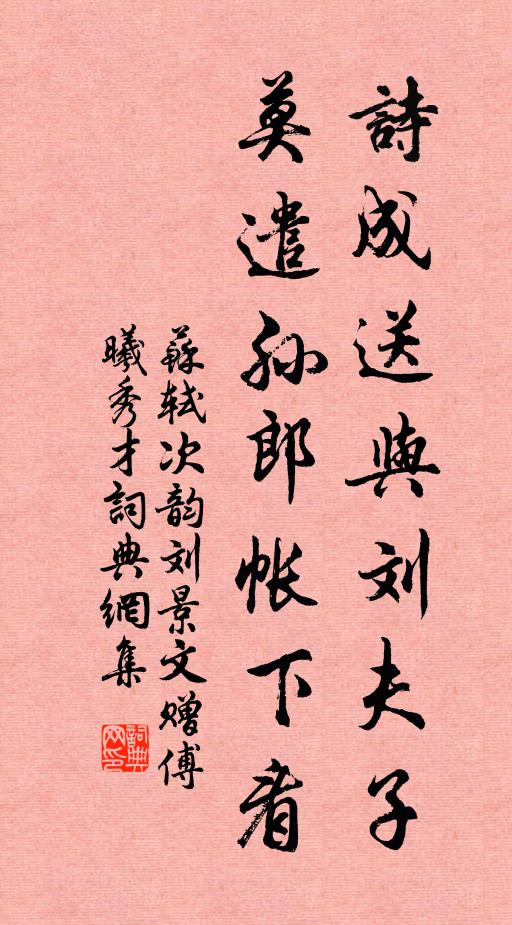 詩成送與刘夫子
莫遣孙郎帐下看
蘇轼次韵刘景文赠傅
曦秀才詞典網集
詞典网印